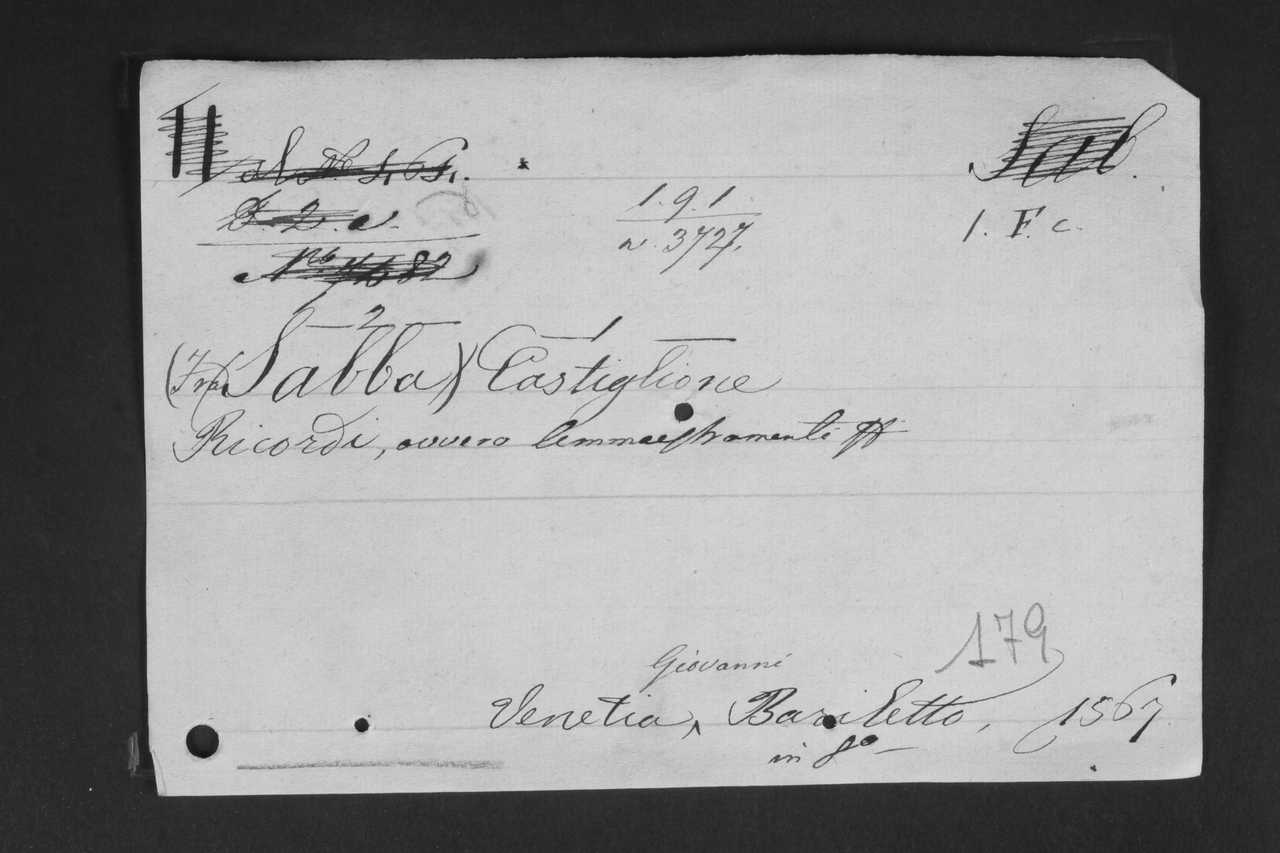 Sab.
1. 9. 1.
n. 3727.
1. F. c.
(Fra Sabba) Castiglione
2 1
Ricordi, ovvero Cemmaestramenti
179
Giovanni
Venetia, Bariletto, 1567
in 8º